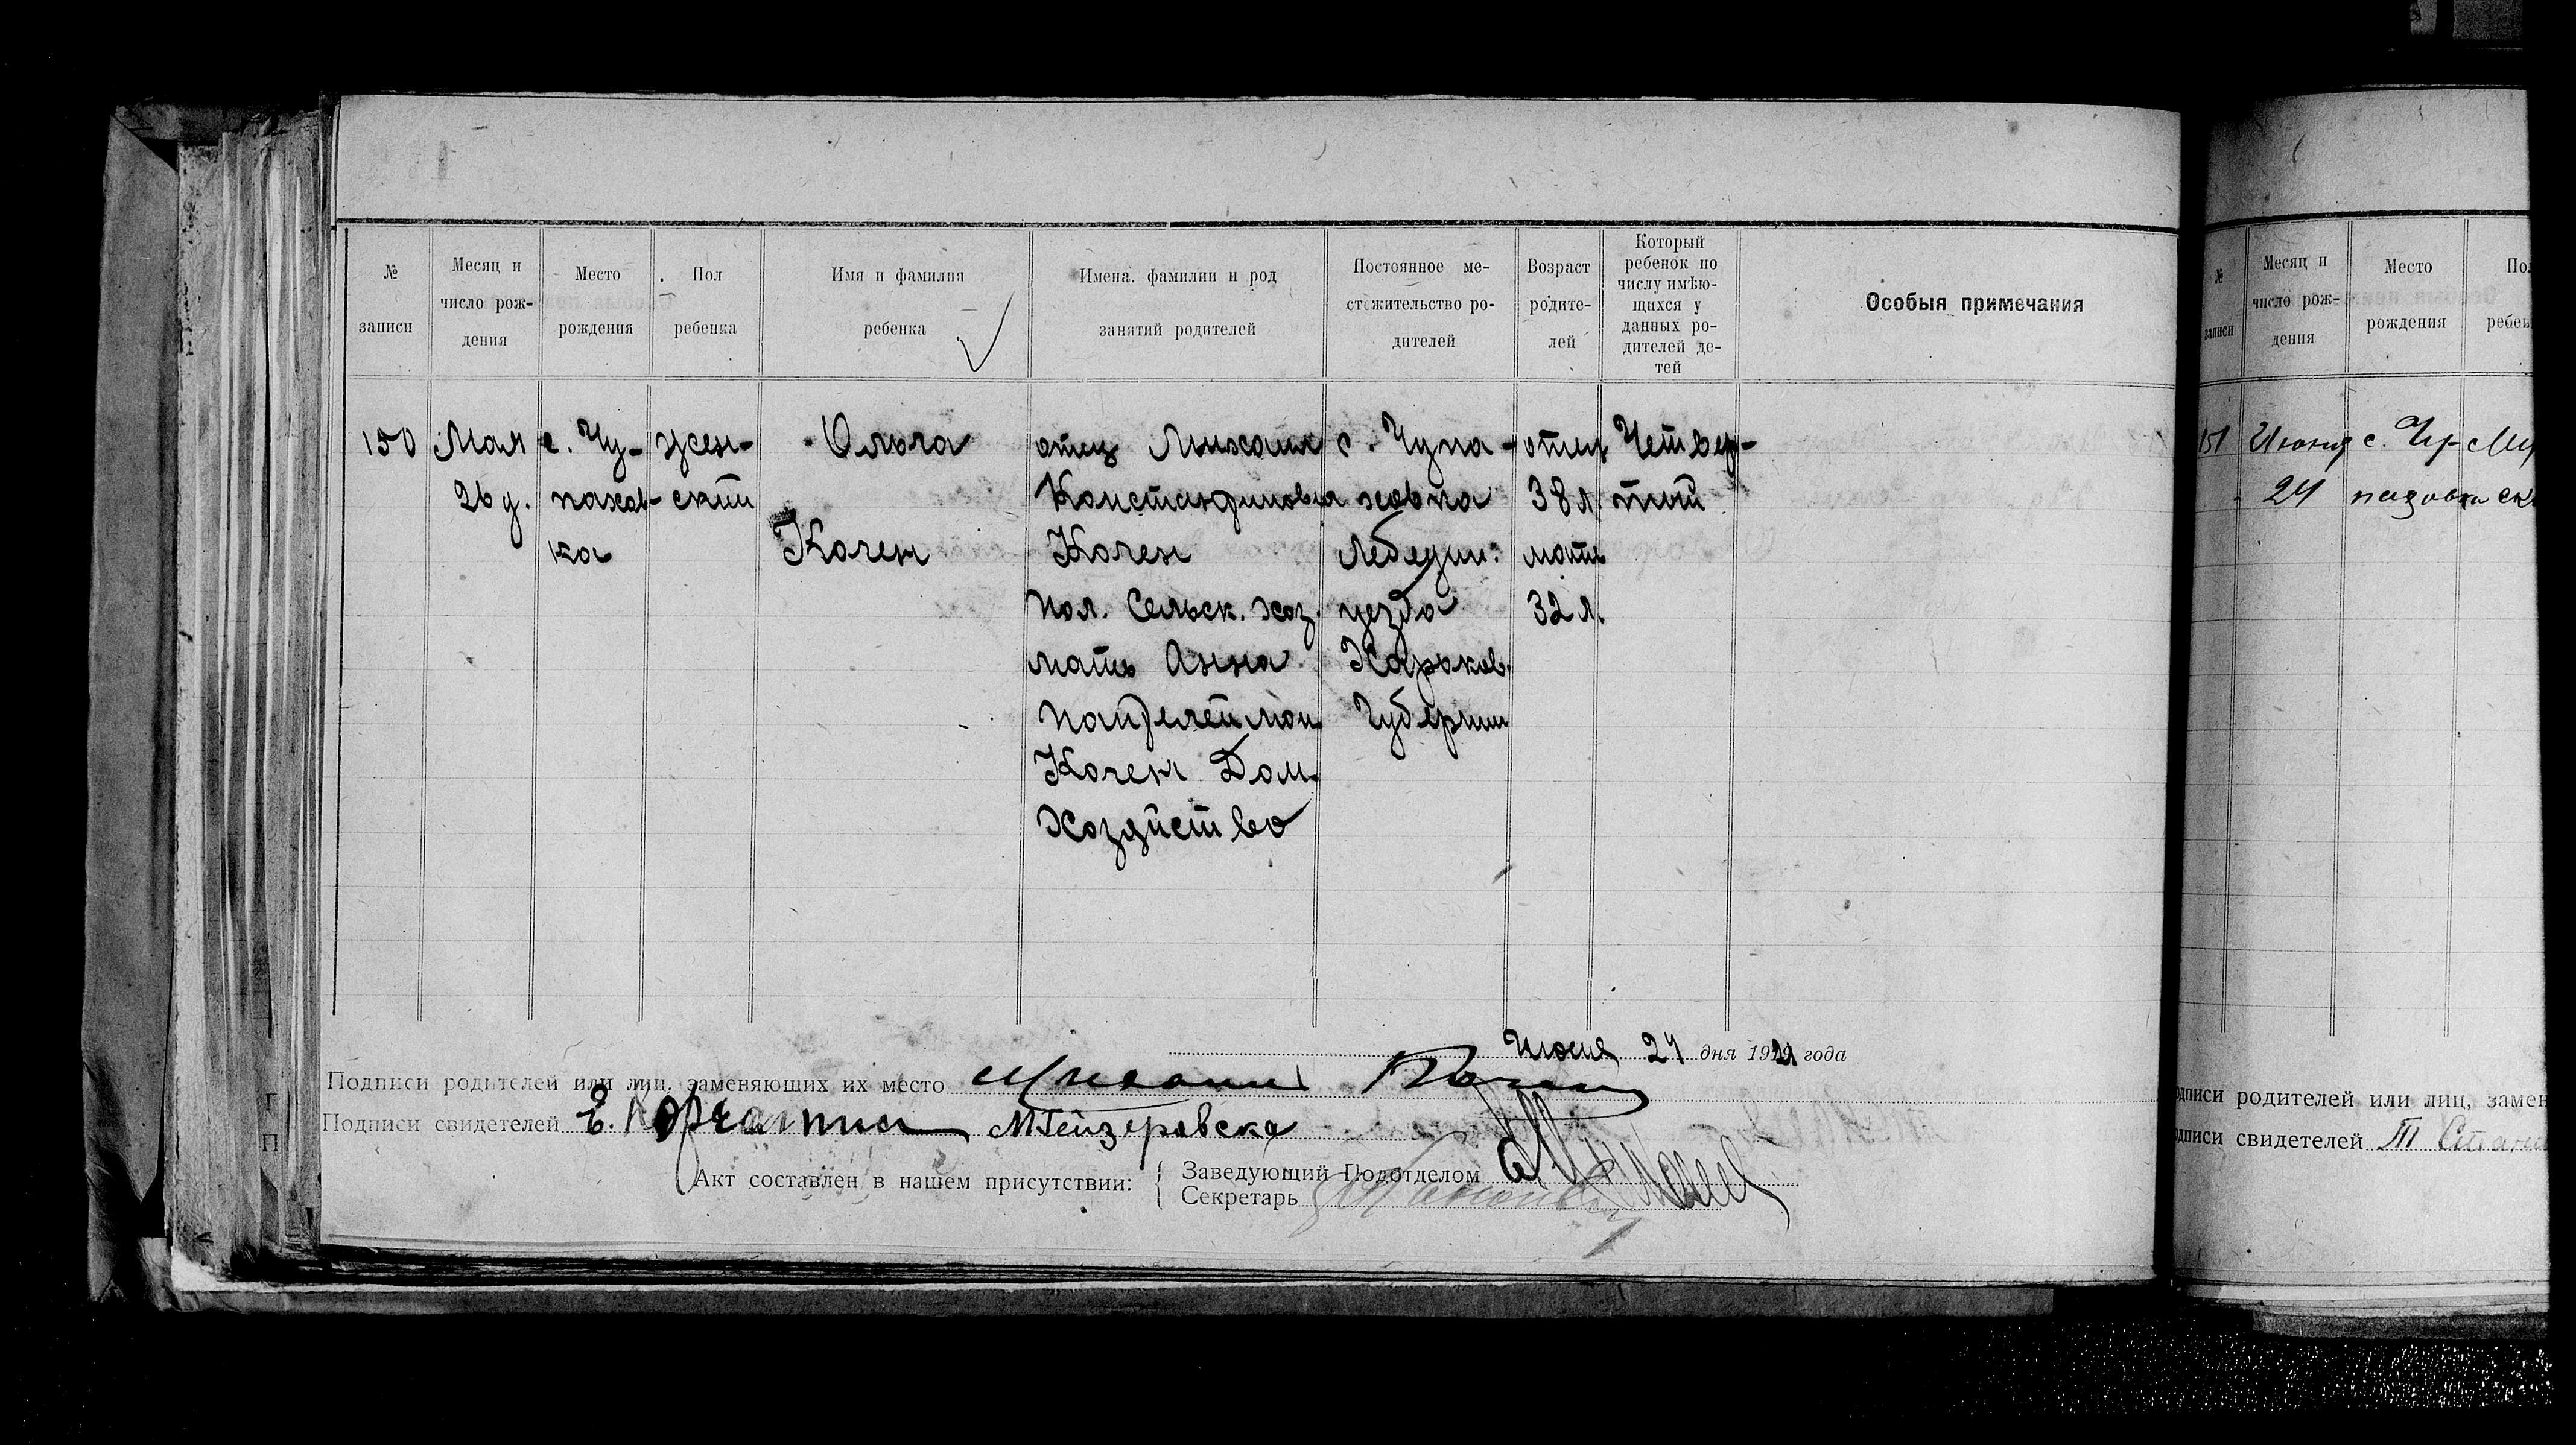 № записи
Месяц и число рождения
Место рождения
Пол ребенка
Имя и фамилия ребенка
Имена. фамилии и род занятий родителей
Постоянное местожительство родителей
Возраст родителей
Который ребенок по числу имѣющихся у данных родителей детей
Особыя примечания
150
Мая
26 д.
с. Чу-
пахов-
ка
жен-
ский
Ольга
Кочен
отец Михаил
Константинович
Кочен
пол. Сельск. хоз.
мать Анна
Пантелеймон.
Кочен Дом.
Хозяйство
с. Чупа-
ховка
Лебедин.
уезда
Харьков.
Губернии
отец
38 л.
мать
32 л.
Четвер-
тый
Июня 24 дня 1921 года
Подписи родителей или лиц, заменяющих их место Михаил
Подписи свидетелей Е.
Акт составлен в нашем присутствии:
Заведующий Подотделом
Секретарь
№ записи
Месяц и число рождения
Место рождения
Пол
ребен
151
Июня
24
с. Чу-
паховка
Му
ск
одписи родителей или лиц, замен
одписи свидетелей